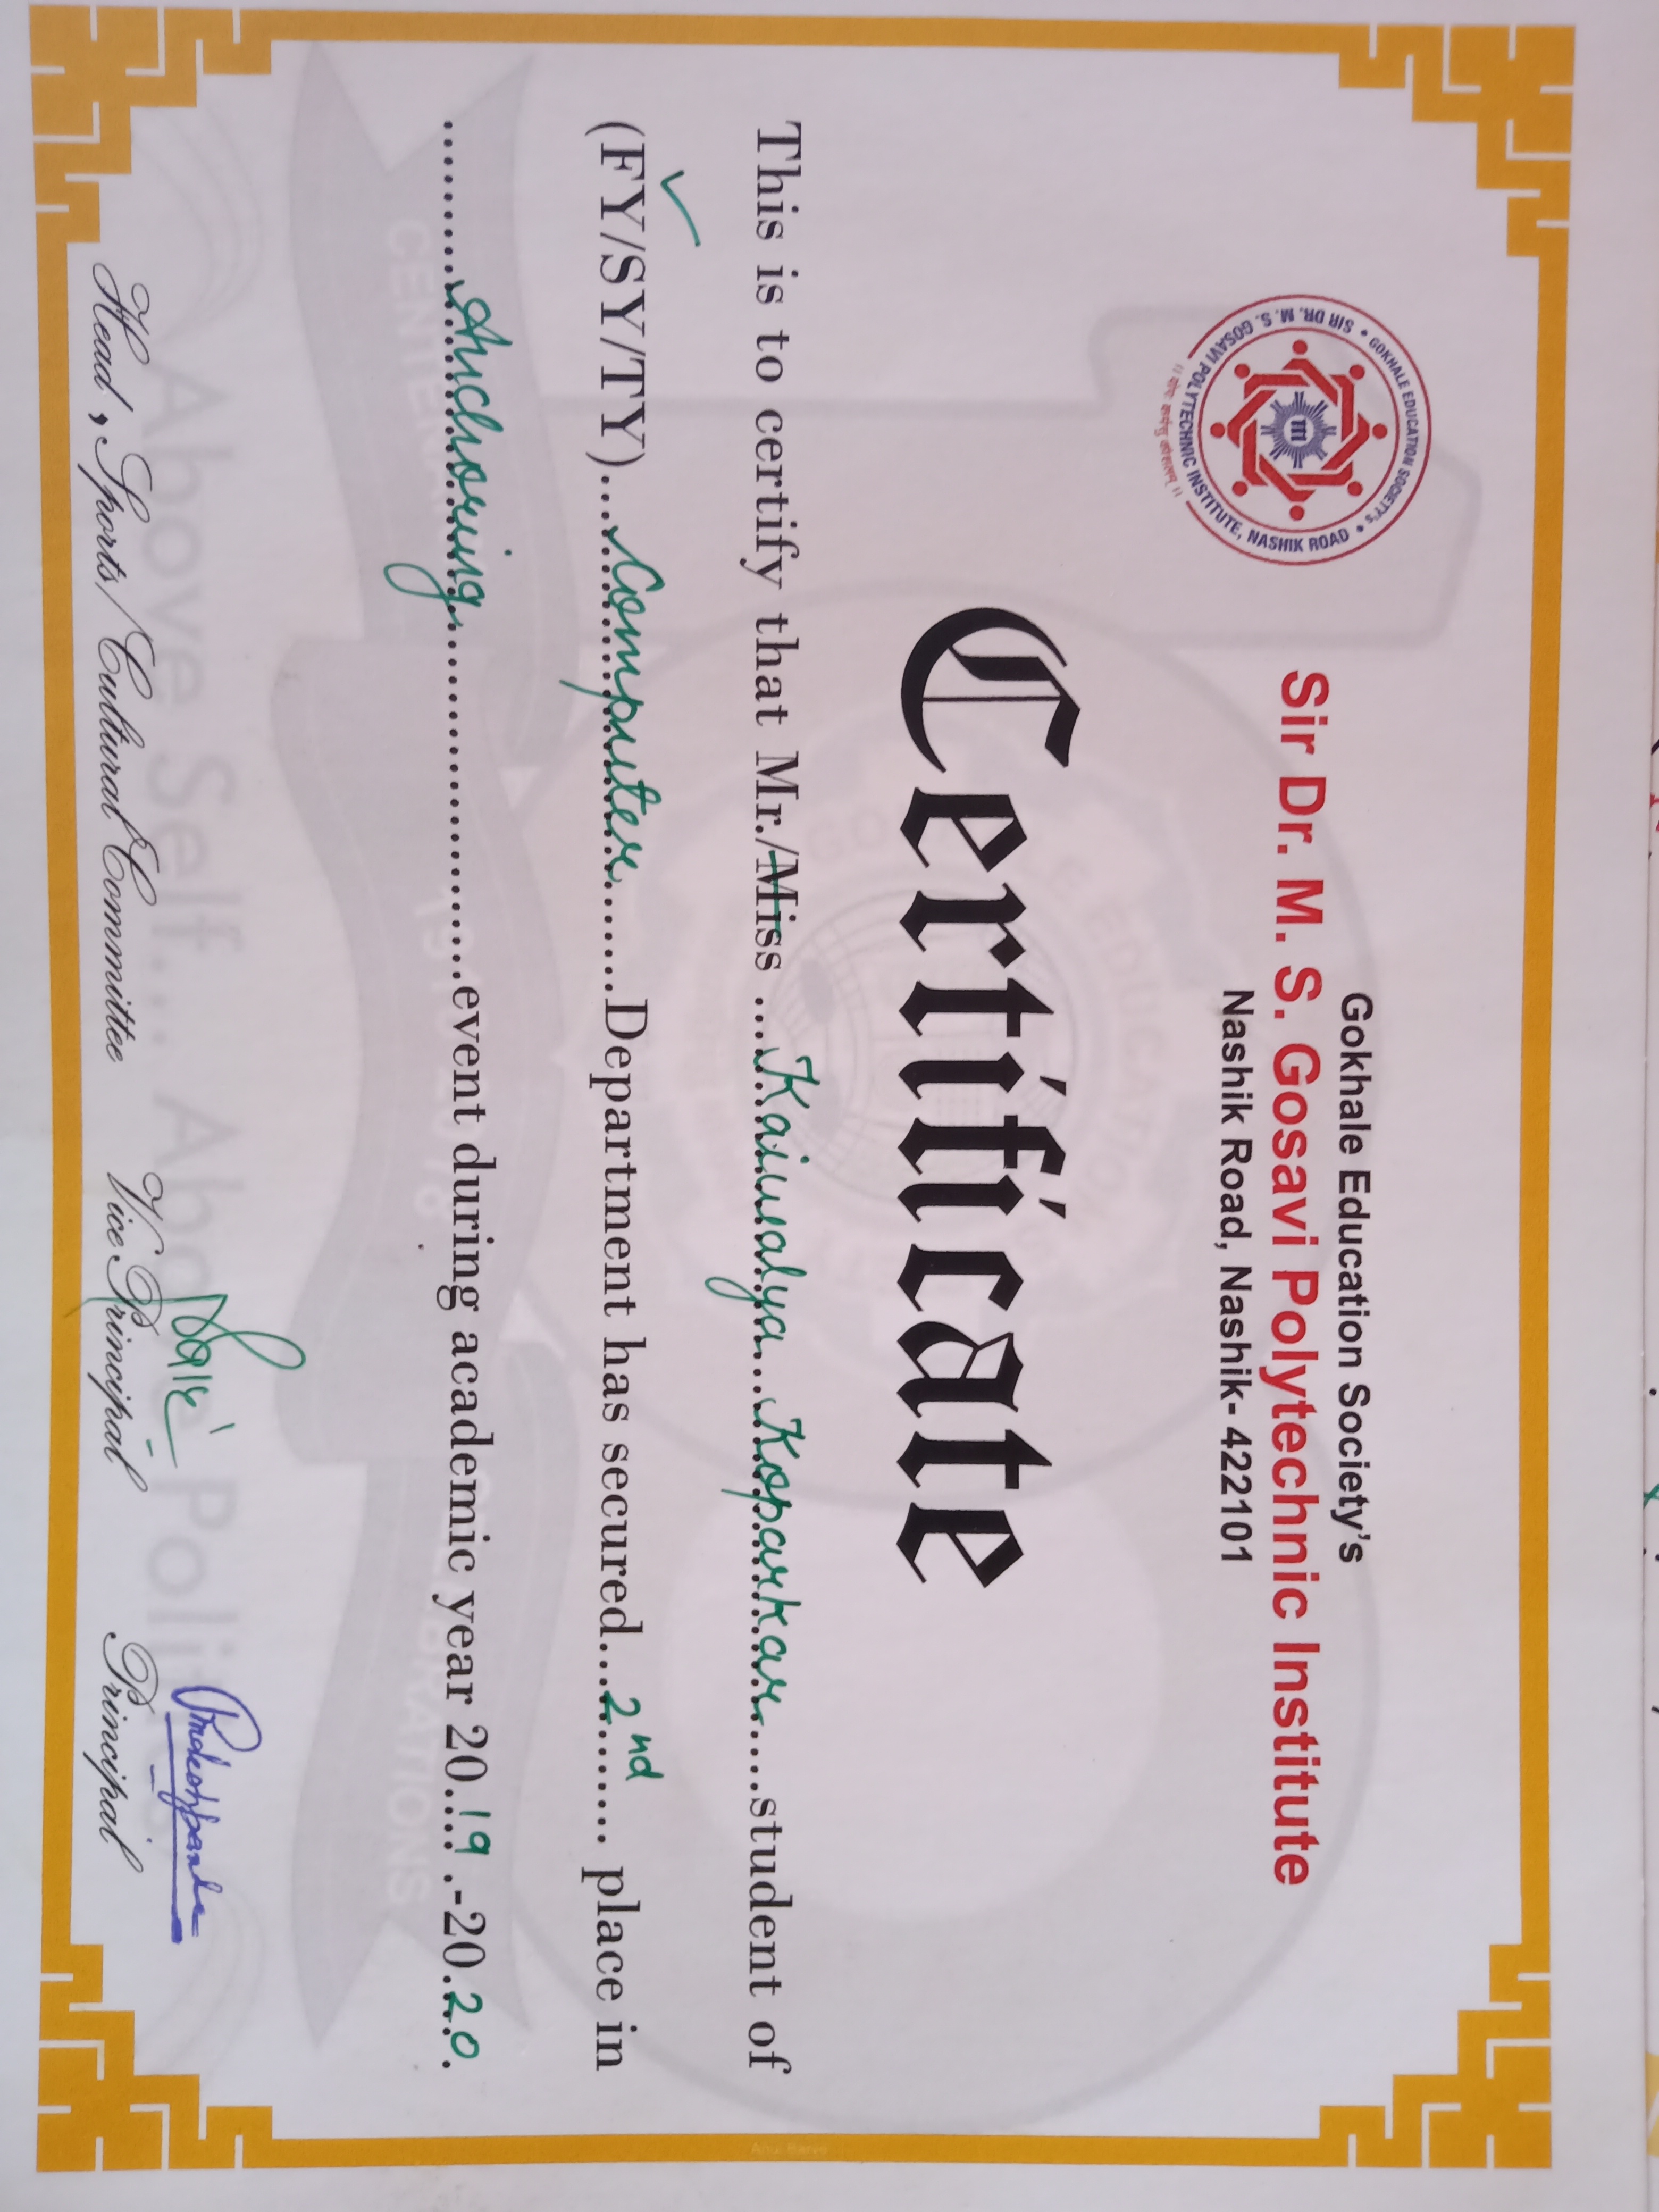 GOKHALE EDUCATION SOCIETY's
SIR DR. M. S. GOSAVI POLYTECHNIC INSTITUTE, NASHIK ROAD
m
॥ योगः कर्मसु कौशलम् ॥
Gokhale Education Society's
Sir Dr. M. S. Gosavi Polytechnic Institute
Nashik Road, Nashik- 422101
Certificate
This is to certify that Mr./Miss ...Kaiwalya...Koparkar....student of
(FY/SY/TY)....Computer.......Department has secured...2nd....... place in
.........Anchoring......................event during academic year 20.19.-20.20.
CENTENARY 1918-2018 CELEBRATIONS
Above Self... Above Politics
Head , Sports/Cultural Committee Vice Principal Principal